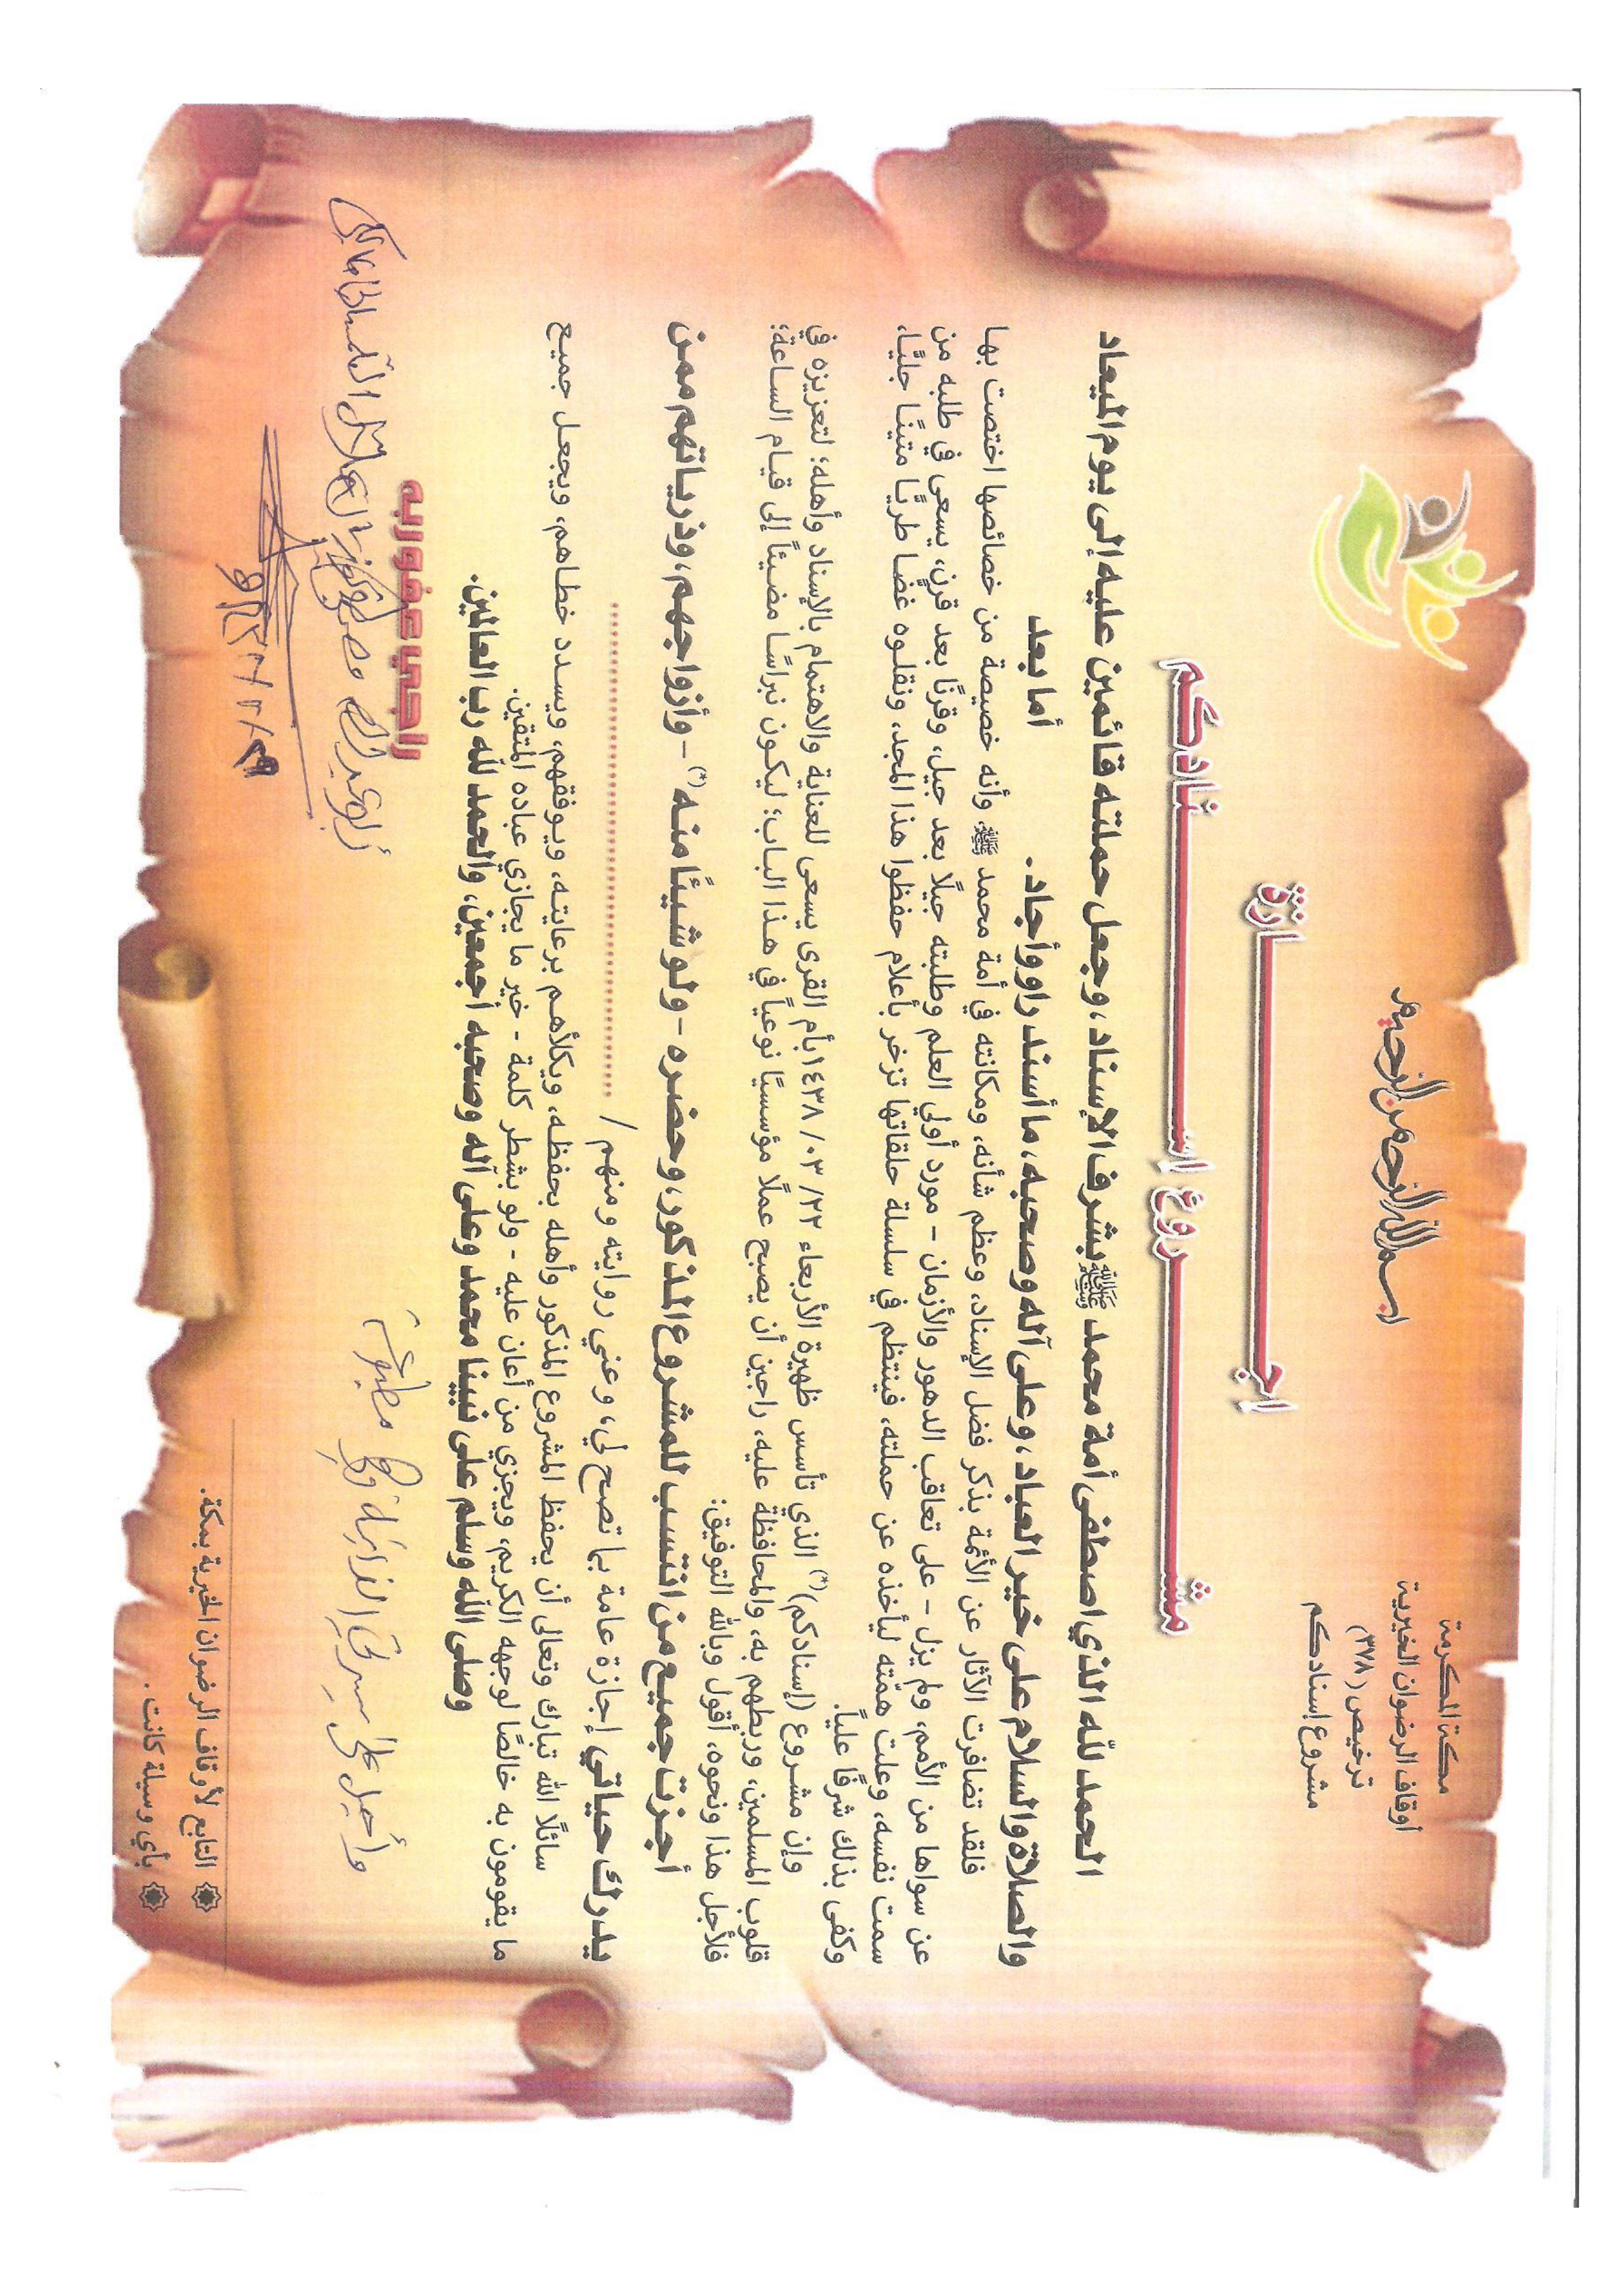 مكة المكرمة
أوقاف الرضوان الخيرية
ترخيص (٣٧٨)
مشروع إسنادكم
بسم الله الرحمن الرحيم
اجـــــازة
مشـــــروع إســـــنادكم
الحمد لله الذي اصطفى أمة محمد ﷺ بشرف الإسناد، وجعل حملته قائمين عليه إلى يوم الميعاد
والصلاة والسلام على خير العباد، وعلى آله وصحبه، ما أسند راو وأجاد. أما بعد
فلقد تضافرت الآثار عن الأئمة بذكر فضل الإسناد، وعظم شأنه، ومكانته في أمة محمد ﷺ، وأنه خصيصة من خصائصها اختصت بها
عن سواها من الأمم، ولم يزل - على تعاقب الدهور والأزمان - مورد أولي العلم وطلبته جيلًا بعد جيل، وقرنًا بعد قرن، يسعى في طلبه من
سمت نفسه، وعلت همّته ليأخذه عن حملته، فينتظم في سلسلة حلقاتها تزخر بأعلام حفظوا هذا المجد، ونقلوه غضا طريًّا متينًا جليًّا،
وكفى بذلك شرفًا عليًا.
وإن مشروع (إسنادكم)(*) الذي تأسس ظهيرة الأربعاء ٢٣/ ٠٣/ ١٤٣٨ بأم القرى يسعى للعناية والاهتمام بالإسناد وأهله؛ لتعزيزه في
قلوب المسلمين، وربطهم به، والمحافظة عليه، راجين أن يصبح عملًا مؤسسيًا نوعياً في هذا الباب؛ ليكون نبراسًا مضيئاً إلى قيام الساعة؛
فلأجل هذا ونحوه، أقول وبالله التوفيق:
أجزت جميع من انتسب للمشروع المذكور، وحضره - ولو شيئًا منه(*) - وأزواجهم، وذرياتهم ممن
يدرك حياتي إجازة عامة بما تصح لي، وعني روايته ومنهم / ........................
سائلًا الله تبارك وتعالى أن يحفظ المشروع المذكور وأهله بحفظه، ويكلأهم برعايته، ويوفقهم، ويسدد خطاهم، ويجعل جميع
ما يقومون به خالصًا لوجهه الكريم، ويجزي من أعان عليه - ولو بشطر كلمة - خير ما يجازي عباده المتقين.
وصلى الله وسلم على نبينا محمد وعلى آله وصحبه أجمعين، والحمد لله رب العالمين.
راجي عفو ربه
أبو عبد الله
التابع لأوقاف الرضوان الخيرية بمكة.
بأي وسيلة كانت.